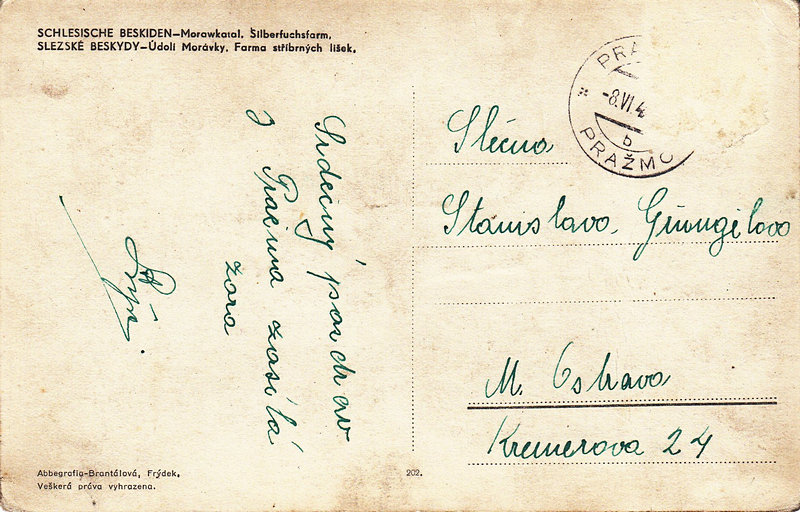 SCHLESISCHE BESKIDEN—Morawkatal. Silberfuchsfarm.
SLEZSKÉ BESKYDY—Údolí Morávky. Farma stříbrných lišek.
PRA
-8.VI.4
b
PRAŽMO
Slečna
Stanislava
M. Ostrava
Kremerova 24
Srdečný
z
zasílá
zora
Abbegrafia-Brantálová, Frýdek.
Veškerá práva vyhrazena.
202.